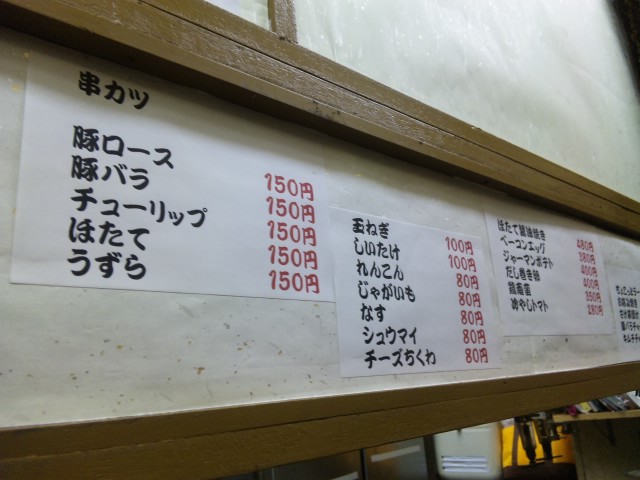 串カツ
豚ロース 150円
豚バラ 150円
チューリップ 150円
ほたて 150円
うずら 150円
玉ねぎ 100円
しいたけ 100円
れんこん 80円
じゃがいも 80円
なす 80円
シュウマイ 80円
チーズちくわ 80円
ほたて醤油焼き 480円
ベーコンエッグ 380円
ジャーマンポテト 400円
だし巻き卵 400円
350円
冷やしトマト 280円